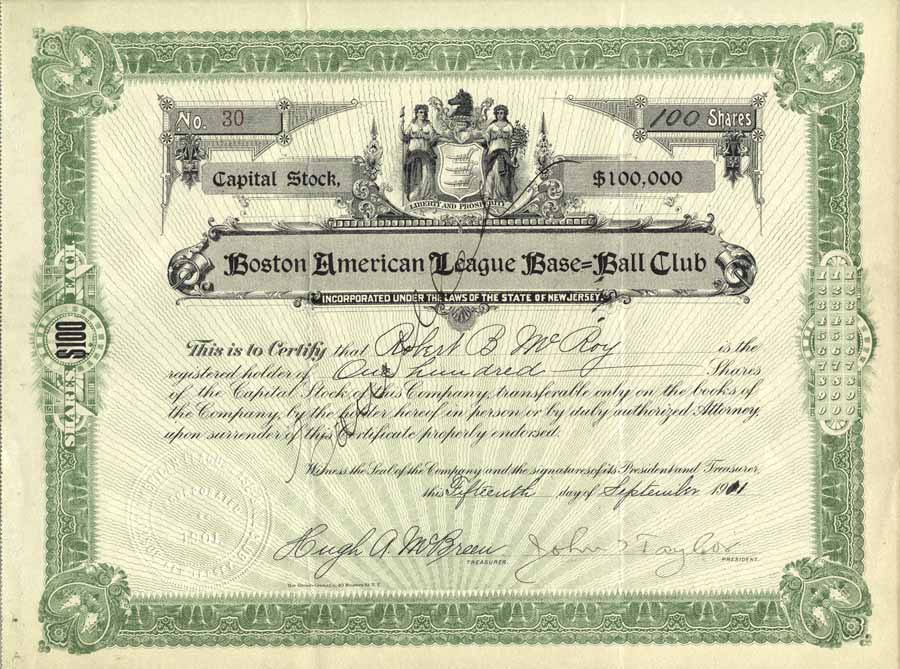 No. 30
100 Shares
Capital Stock,
$100,000
LIBERTY AND PROSPERITY
Boston American League Base=Ball Club
INCORPORATED UNDER THE LAWS OF THE STATE OF NEW JERSEY.
SHARES $100 EACH
This is to Certify that Robert B McRoy is the
registered holder of One hundred Shares
of the Capital Stock of this Company, transferable only on the books of
the Company, by the holder hereof in person or by duly authorized Attorney,
upon surrender of this Certificate properly endorsed.
Witness the Seal of the Company and the signatures of its President and Treasurer,
this Fifteenth day of September 1911
1901
Hugh A McBreen
TREASURER.
John I Taylor
PRESIDENT.